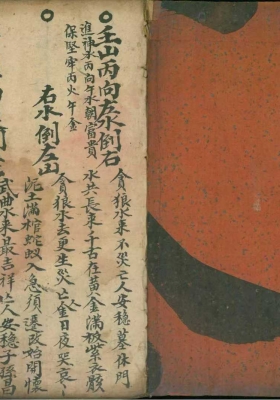 壬山丙向左水倒右
進神水丙向午水朝富貴
保堅牢丙火午金
貪狼水來不災亡人安穩墓休門
水共長東千古在畜金滿
右水倒左山
貪狼水去更生災亡金日夜哭哀
泥土滿棺蛇蟻入急須遷改始開懷
武曲水來最吉祥亡人安穩子孫昌